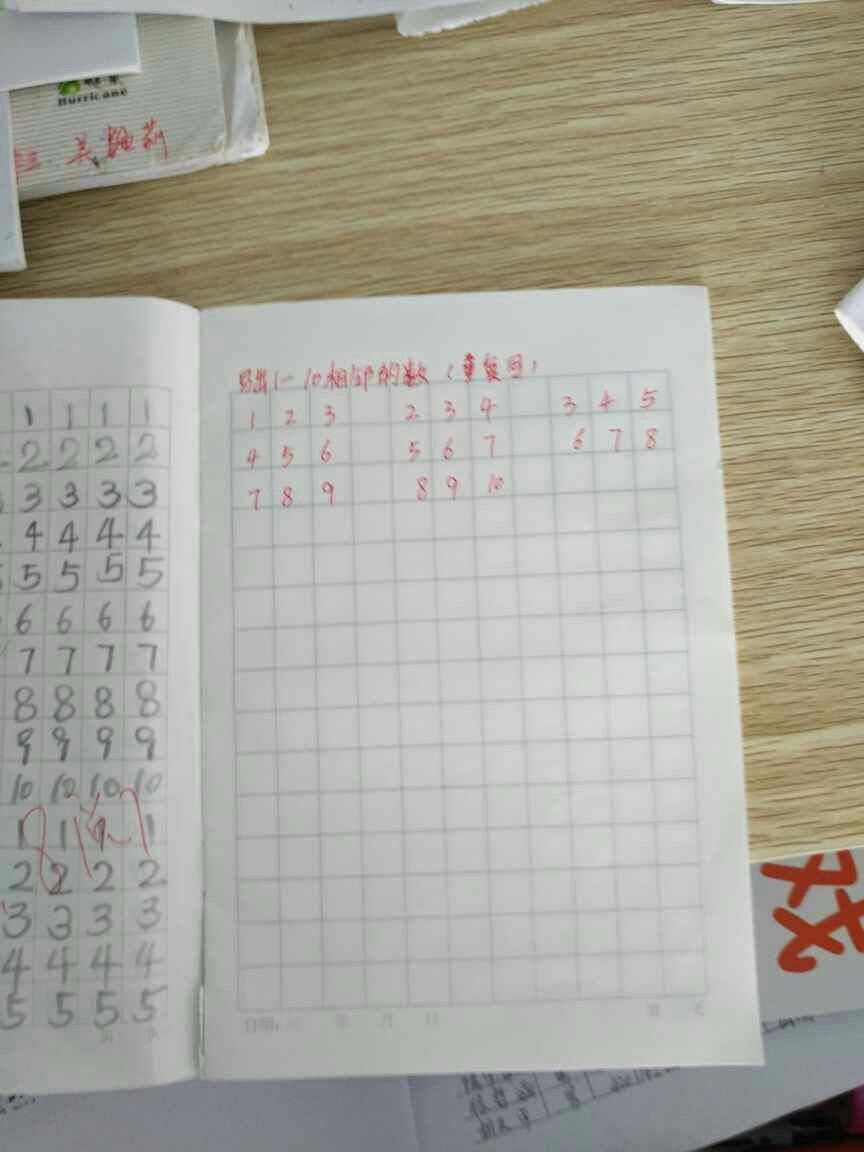 Hurricane
1 1 1 1
2 2 2 2
3 3 3 3
4 4 4 4
5 5 5 5
6 6 6 6
7 7 7 7
8 8 8 8
9 9 9 9
10 10 10 10
1 1 1 1
2 2 2 2
3 3 3 3
4 4 4 4
5 5 5 5
写出1-10相邻的数(重复写)
1 2 3 2 3 4 3 4 5
4 5 6 5 6 7 6 7 8
7 8 9 8 9 10
日期: 年 月 日
戏